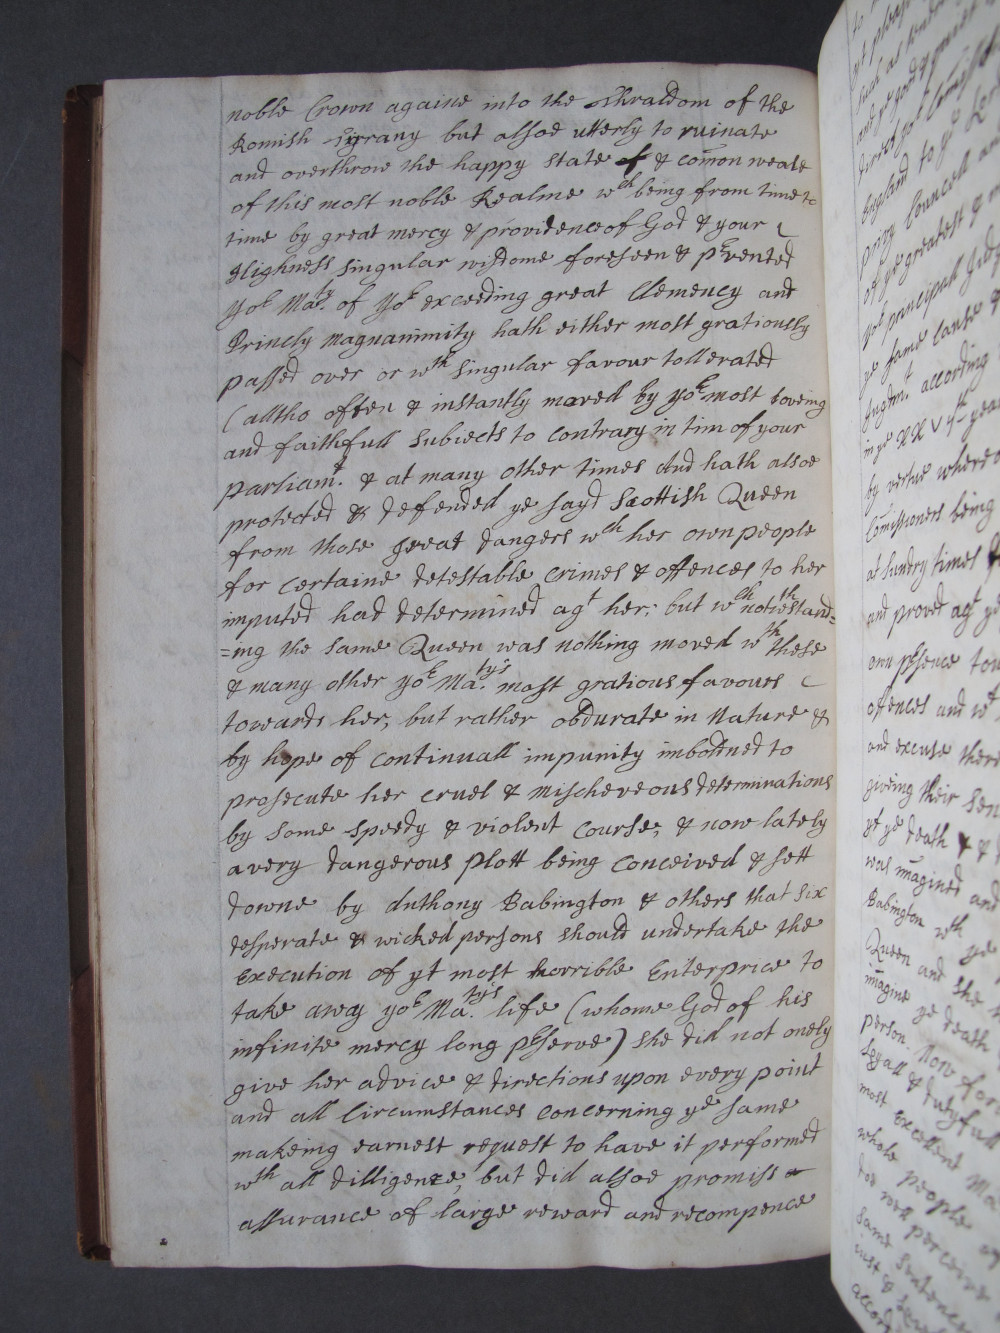 noble Crown againe into the thraldom of the
Romish Tyrany but alsoe utterly to ruinate
and overthrow the happy state of & com̄on weale
of this most noble Realme wch being from time to
time by great mercy & providence of God & your
Highness singular wisdome foreseen & prvented
Yor Maty. of Yor exceeding great Clemency and
Princly magnanimity hath either most gratiously
passed over or wth singular favour tollerated
(alltho often & instantly moved by yor most loveing
and faithfull subiects to contrary in tim of your
parliamt. & at many other times And hath alsoe
protected & defended ye sayd Scottish Queen
from those great dangers wch her own people
for certaine detestable crimes & offences to her
imputed had determined agt her; but wch notwthstand=
=ing the same Queen was nothing moved wth these
& many other yor Matys. most gratious favours
towards her, but rather obdurate in Nature &
by hope of continuall impunity imboldned to
prosecute her cruel & mischeveous determinations
by some speedy & violent course; & now lately
a very dangerous plott being conceived & sett
downe by Anthony Babington & others that six
desperate & wicked persons should undertake the
Execution of yt most horrible Enterprice to
take away yor Matys. life (whome God of his
infinite mercy long prserve) she did not onely
give her advice & directions upon every point
and all Circumstances concerning ye same
makeing earnest request to have it performed
wth all dilligence, but did alsoe promiss
assurance of large reward and recompence
England to ye
privy Councell and
of ye greatest &
yor principall
ye same cause &
Jugmt. according
in ye XXV yth year
by vertue whereof
Com̄issioners being
at sundry times
and proved agt ye
own prsence
offences and
and excuse there
giveing their Sen
yt ye death &
was imagined and
Babington wth ye
Queen and she
imagine ye death
person. Now for
Legall & dutyfull
most Excellent Ma
whole people
doe well perceive
same Sentence
just &
accord